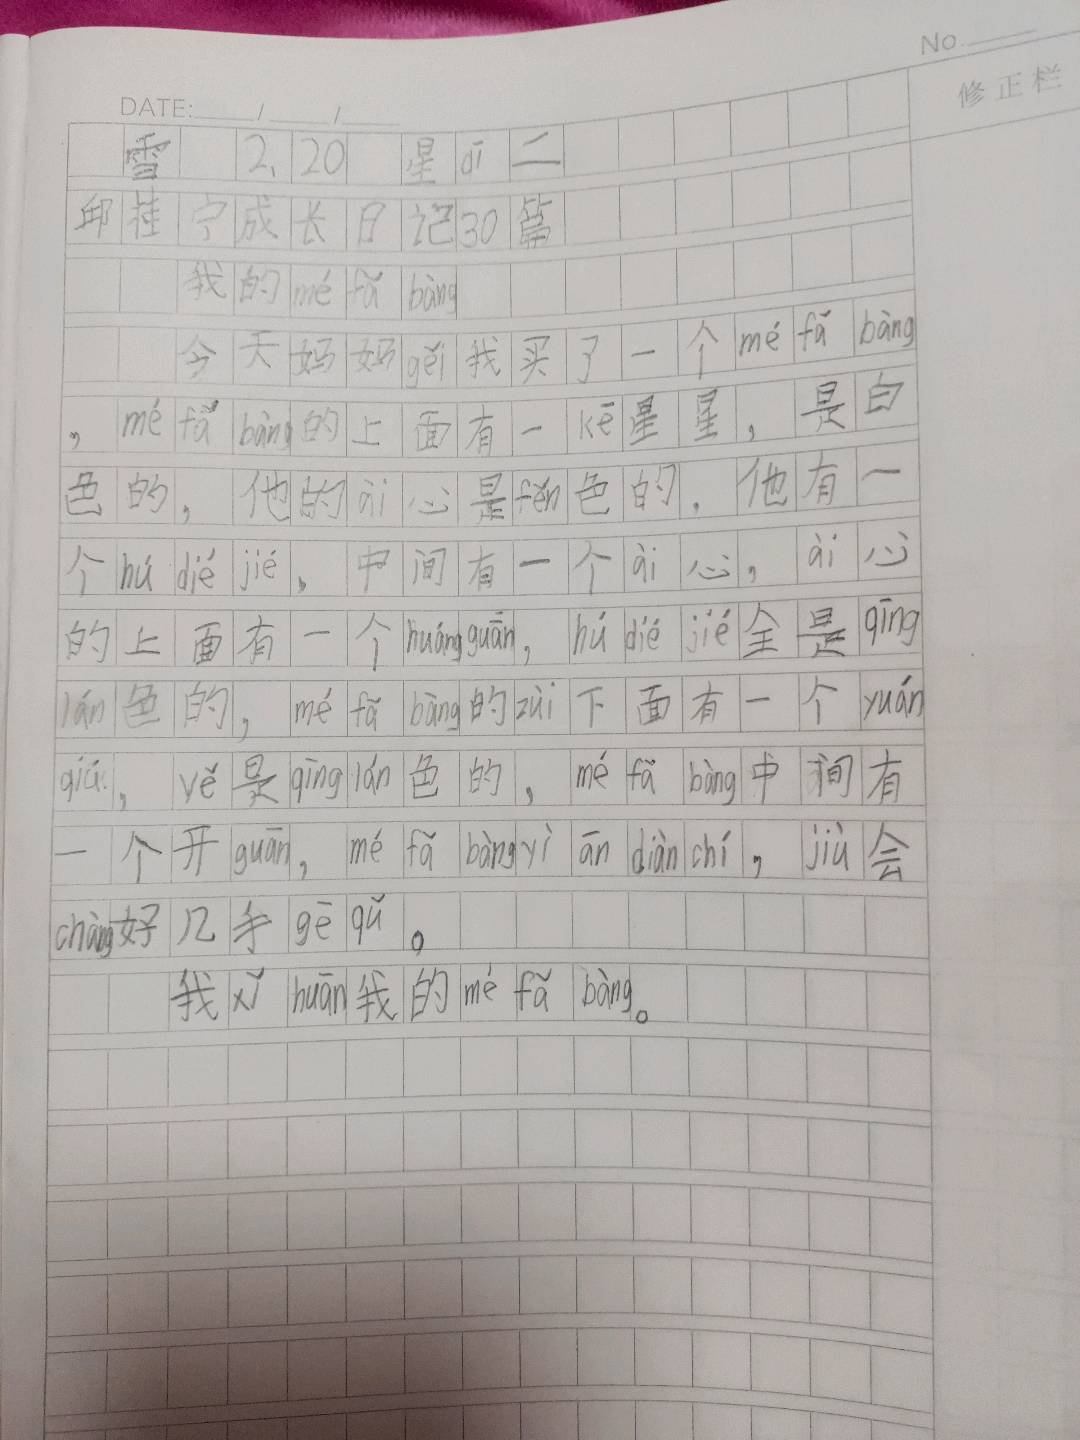 No.
修正栏
DATE: / /
雪 2.20 星dī二
邱桂宁成长日记30篇
我的mé fǎ bàng
今天妈妈gěi我买了一个mé fǎ bàng
,mé fǎ bàng的上面有一kē星星,是白
色的,他的ài心是fěn色的,他有一
个hú dié jié,中间有一个ài心,ài心
的上面有一个huáng guān,hú dié jié全是qīng
lán色的,mé fǎ bàng的zùi下面有一个yuán
qiú,yě是qīng lán色的,mé fǎ bàng中间有
一个开guān,mé fǎ bàng yì ān diàn chí,jiù会
chàng好几手gē qǔ。
我xǐ huān我的mé fǎ bàng。